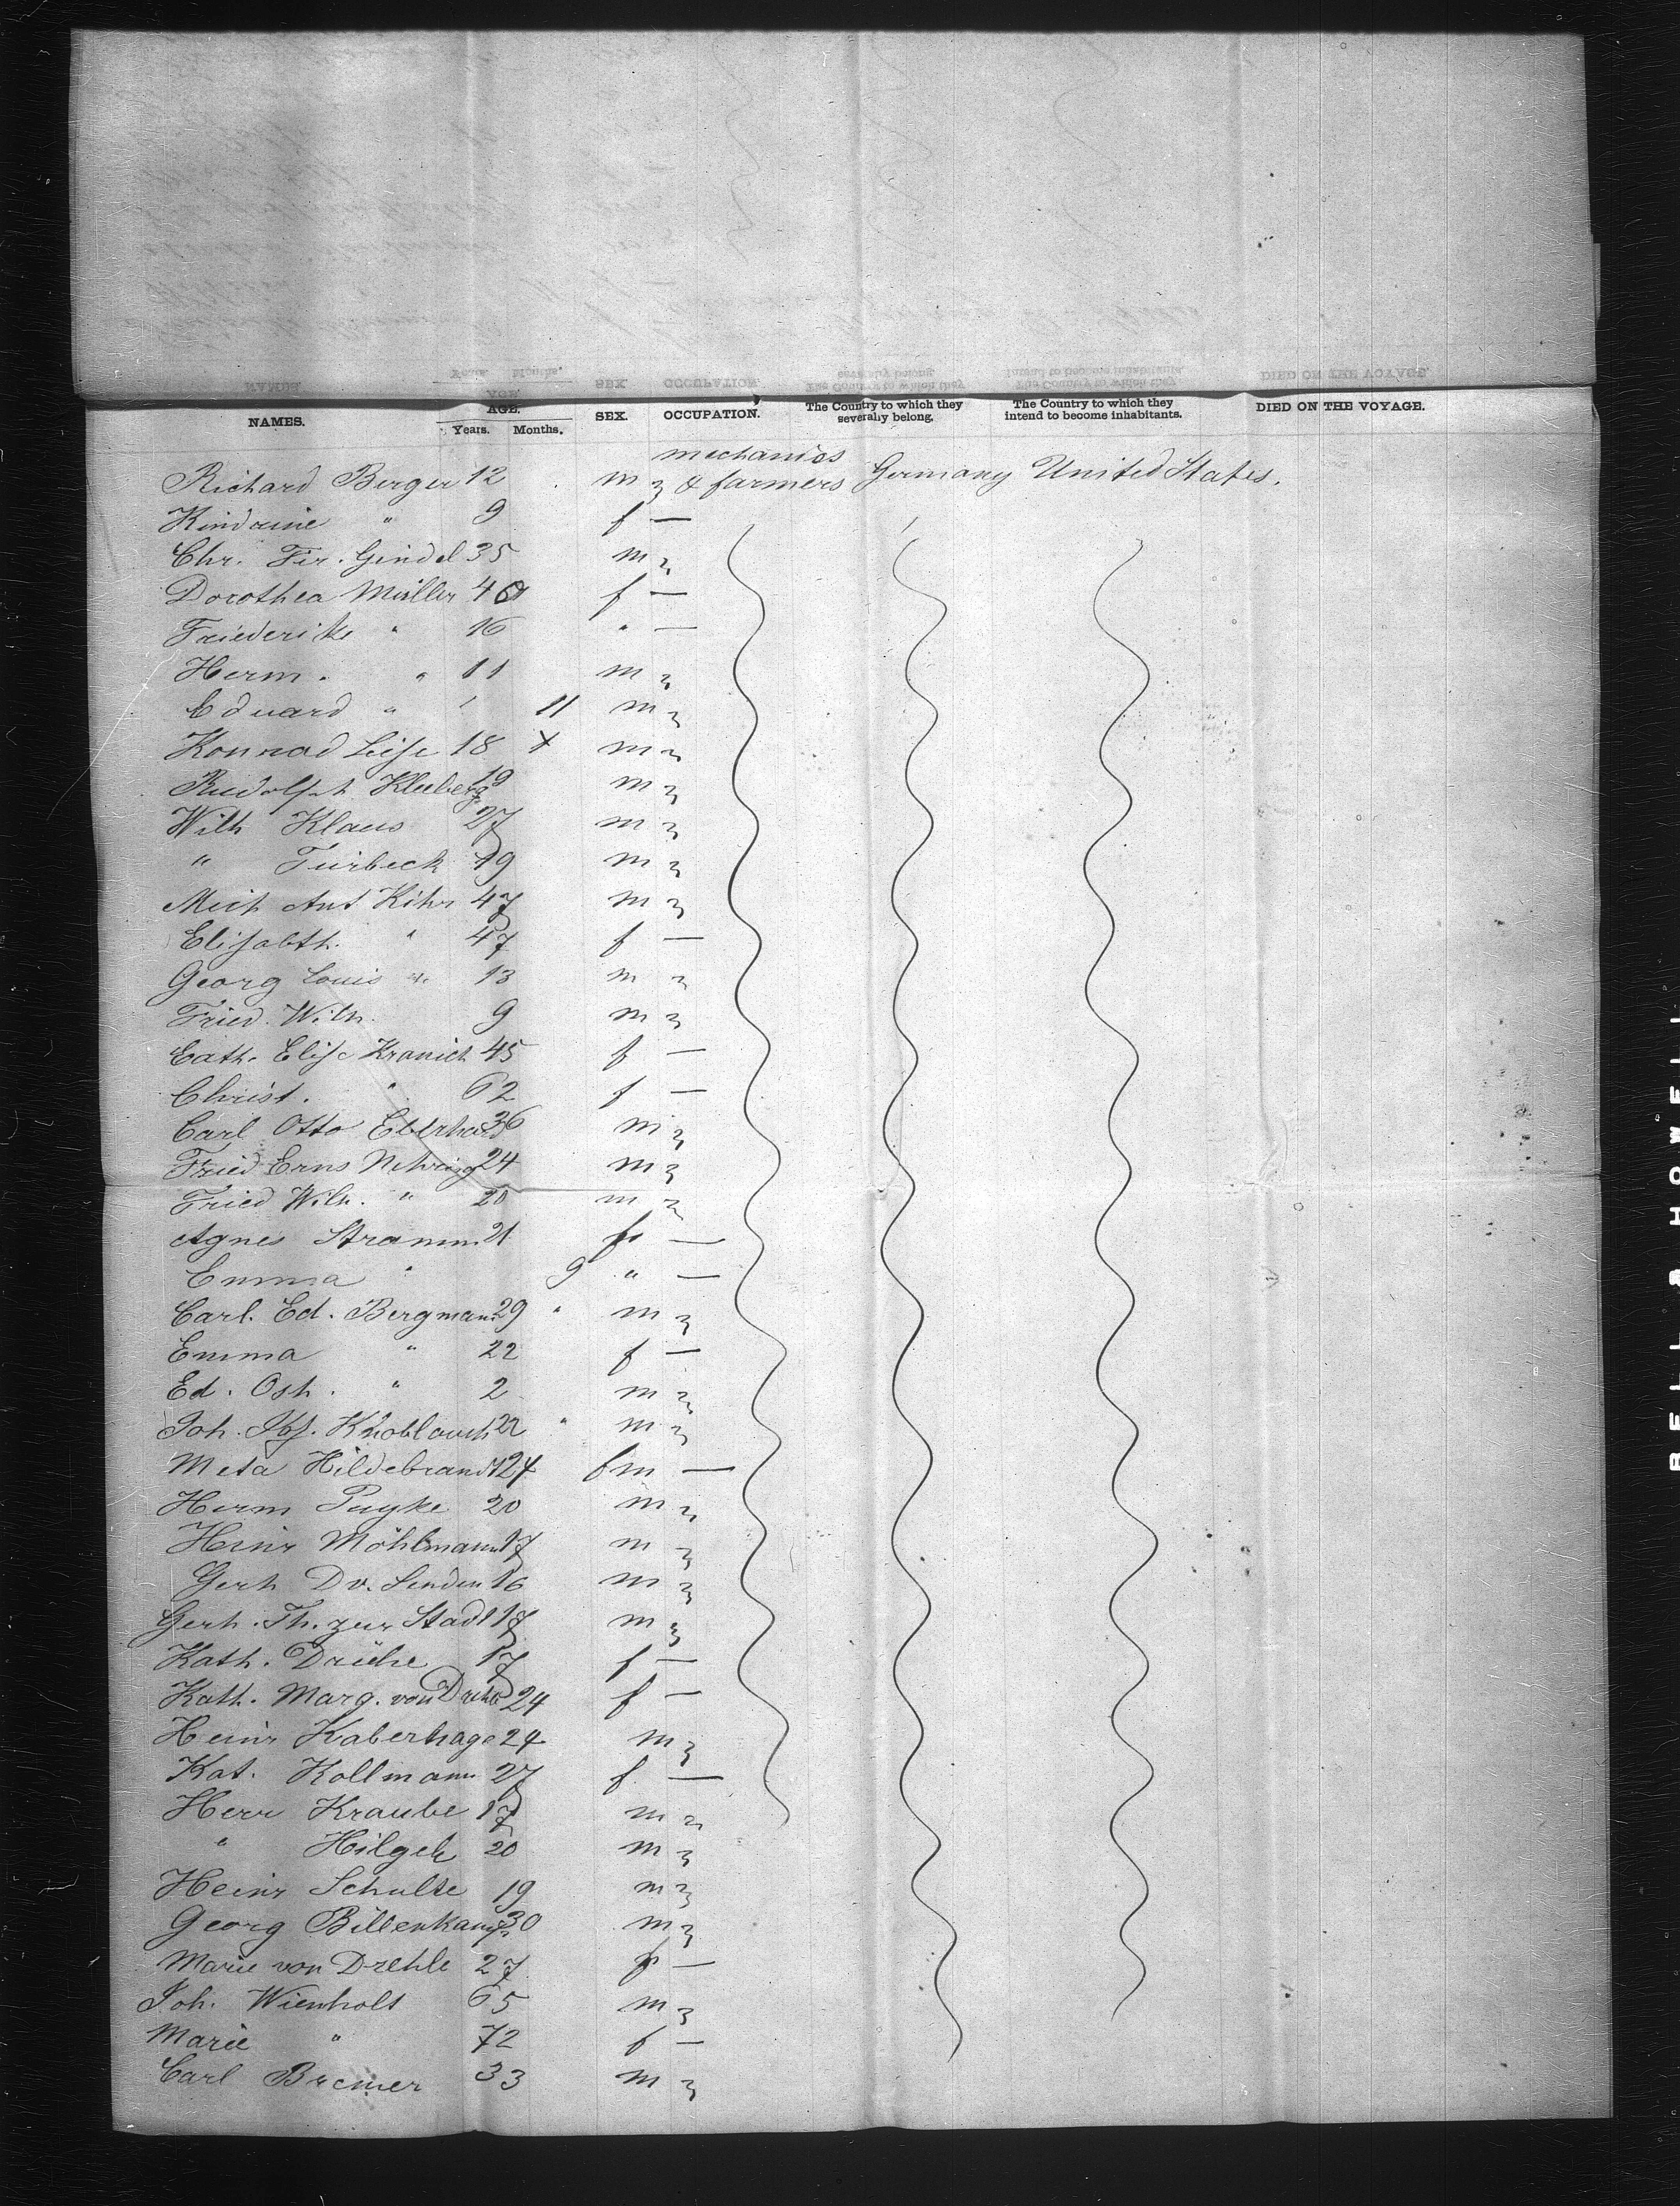 NAMES.
AGE.
Years. Months.
SEX.
OCCUPATION.
The Country to which they severally belong.
The Country to which they intend to become inhabitants.
DIED ON THE VOYAGE.
mechanics
Richard Berger 12 m & farmers Germany United States.
" 9 f —
Chr. Gindel 35 m
Dorothea Müller 40 f —
Friederike " 16 " —
Herm. " 11 m
Eduard " 11 m
Konrad 18 x m
Rudolph Kleeberg 19 m
Wilh Klaus 27 m
" Turbeck 19 m
Ant 47 m
Elisabth. " 47 f —
Georg Louis " 13 m
Fried. Wilh. 9 m
Cath. Elise Kranich 45 f —
Christ. " 62 f —
Carl Otto Eberhard 36 m
Fried Erns Nehring 24 m
Fried Wilh. " 20 m
Agnes Stramm 21 f —
Emma " 9 " —
Carl. Ed. Bergmann 29 " m
Emma " 22 f —
Ed. " 2 m
Joh. Knoblauch 22 " m
Meta Hildebrandt 24 fm —
Herm 20 m
Heinr Möhlmann 17 m
Gerh D v. Linden 16 m
Gerh. Th. zur Stadt 17 m
Kath. 17 f —
Kath. Marg. von Drehle 24 f —
Heinr Kaberhage 24 m
Kat. Kollmann 27 f —
Herr Kraube 17 m
" 20 m
Heinr Schulte 19 m
Georg Billenkamp 30 m
Marie von Drehle 27 f —
Joh. Wienholt 65 m
Marie " 72 f —
Carl Bremer 33 m
BELL & HOWELL